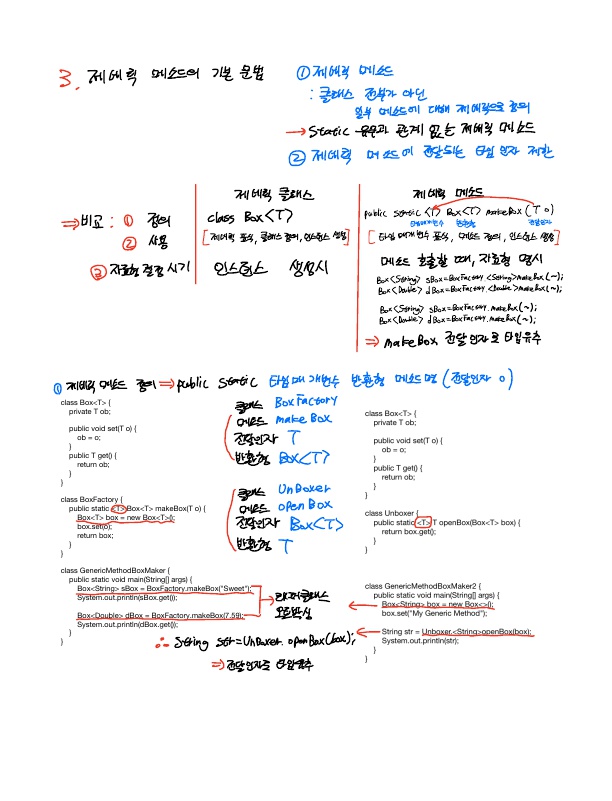 3. 제네릭 메소드의 기본 문법
① 제네릭 메소드
: 클래스 전부가 아닌
일부 메소드에 대해 제네릭으로 정의
→ static 유무와 관계 없는 제네릭 메소드
② 제네릭 메소드에 전달되는 타입 인자 제한
⇒ 비교 : ① 정의
② 사용
③ 자료형 결정 시기
제네릭 클래스
class Box<T>
[제네릭 표시, 클래스 정의, 인스턴스 생성]
인스턴스 생성시
제네릭 메소드
public static <T> Box<T> makeBox(T o)
타입매개변수 반환형 전달인자
[타입 매개변수 표시, 메소드 정의, 인스턴스 생성]
메소드 호출할 때, 자료형 명시
Box<String> sBox=BoxFactory.<String>makeBox(~);
Box<Double> dBox=BoxFactory.<Double>makeBox(~);
Box<String> sBox=BoxFactory.makeBox(~);
Box<Double> dBox=BoxFactory.makeBox(~);
⇒ makeBox 전달인자로 타입유추
① 제네릭 메소드 정의 ⇒ public static 타입매개변수 반환형 메소드명 (전달인자 o)
class Box<T> {
private T ob;
public void set(T o) {
ob = o;
}
public T get() {
return ob;
}
}
class BoxFactory {
public static <T> Box<T> makeBox(T o) {
Box<T> box = new Box<T>();
box.set(o);
return box;
}
}
class GenericMethodBoxMaker {
public static void main(String[] args) {
Box<String> sBox = BoxFactory.makeBox("Sweet");
System.out.println(sBox.get());
Box<Double> dBox = BoxFactory.makeBox(7.59);
System.out.println(dBox.get());
}
}
클래스 BoxFactory
메소드 makeBox
전달인자 T
반환형 Box<T>
클래스 UnBoxer
메소드 openBox
전달인자 Box<T>
반환형 T
래퍼클래스
오토박싱
∴ String str=UnBoxer.openBox(box);
⇒ 전달인자로 타입유추
class Box<T> {
private T ob;
public void set(T o) {
ob = o;
}
public T get() {
return ob;
}
}
class Unboxer {
public static <T> T openBox(Box<T> box) {
return box.get();
}
}
class GenericMethodBoxMaker2 {
public static void main(String[] args) {
Box<String> box = new Box<>();
box.set("My Generic Method");
String str = Unboxer.<String>openBox(box);
System.out.println(str);
}
}